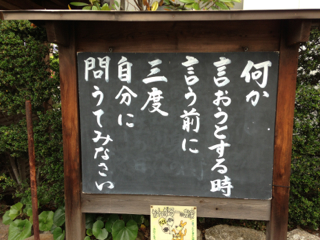 何か
言おうとする時
言う前に
三度
自分に
問うてみなさい